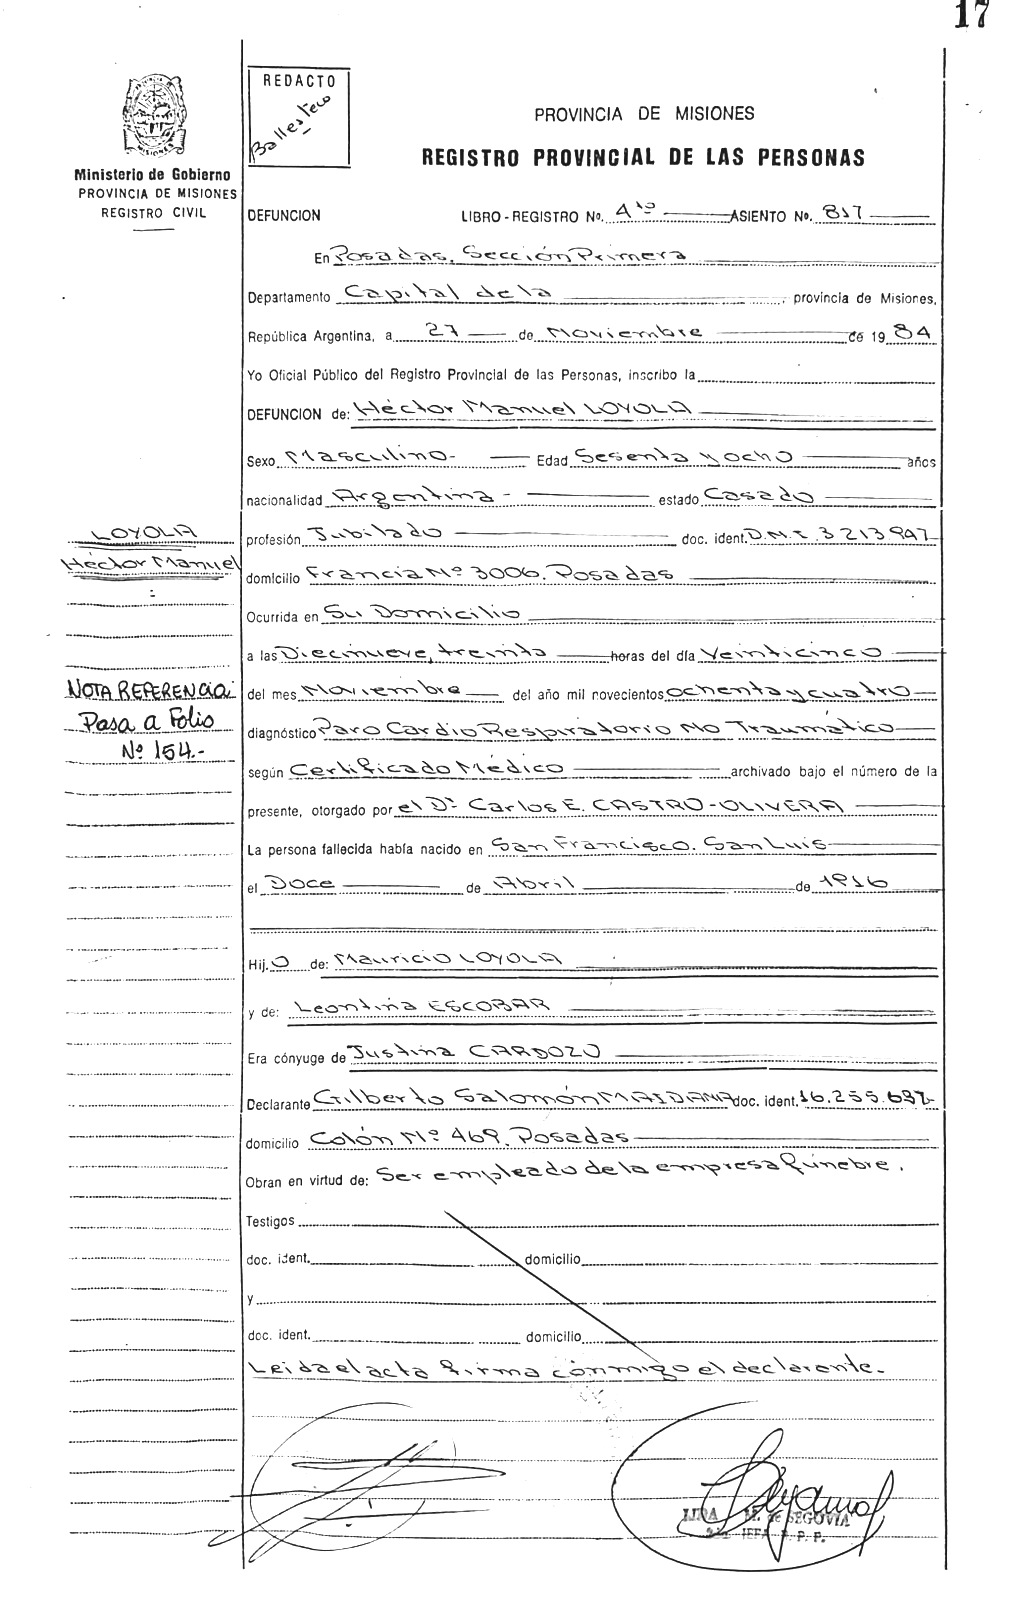 17
REDACTO
Ballesteco
Ministerio de Gobierno
PROVINCIA DE MISIONES
REGISTRO CIVIL
PROVINCIA DE MISIONES
REGISTRO PROVINCIAL DE LAS PERSONAS
DEFUNCION LIBRO-REGISTRO Nº. 4to ASIENTO Nº. 817
En Posadas, Sección Primera
Departamento Capital de la provincia de Misiones,
República Argentina, a 27 de Noviembre de 1984
Yo Oficial Público del Registro Provincial de las Personas, inscribo la
DEFUNCION de: Héctor Manuel LOYOLA
Sexo Masculino- Edad Sesenta y ocho años
nacionalidad Argentina - estado Casado
profesión Jubilado doc. ident. D.N.I. 3213947
domicilio Francia Nº 3006. Posadas
Ocurrida en Su Domicilio
a las Diecinueve, treinta horas del día Veinticinco
del mes Noviembre del año mil novecientos ochenta y cuatro
diagnóstico Paro Cardio Respiratorio No Traumático
según Certificado Médico archivado bajo el número de la
presente, otorgado por el Dr. Carlos E. CASTRO-OLIVERA
La persona fallecida había nacido en San Francisco. San Luis
el Doce de Abril de 1916
Hijo de: Mauricio LOYOLA
y de: Leontina ESCOBAR
Era cónyuge de Justina CARDOZO
Declarante Gilberto Salomón MAIDANA doc. ident. 16.255.637-
domicilio Colón Nº 469. Posadas
Obran en virtud de: Ser empleado de la empresa fúnebre.
Testigos
doc. ident. domicilio
y
doc. ident. domicilio
Leida el acta firma conmigo el declarante.-
LOYOLA
Héctor Manuel
NOTA REFERENCIA:
Pasa a Folio
Nº 154.-
M. de SEGOVIA
JEFA R. P. P.